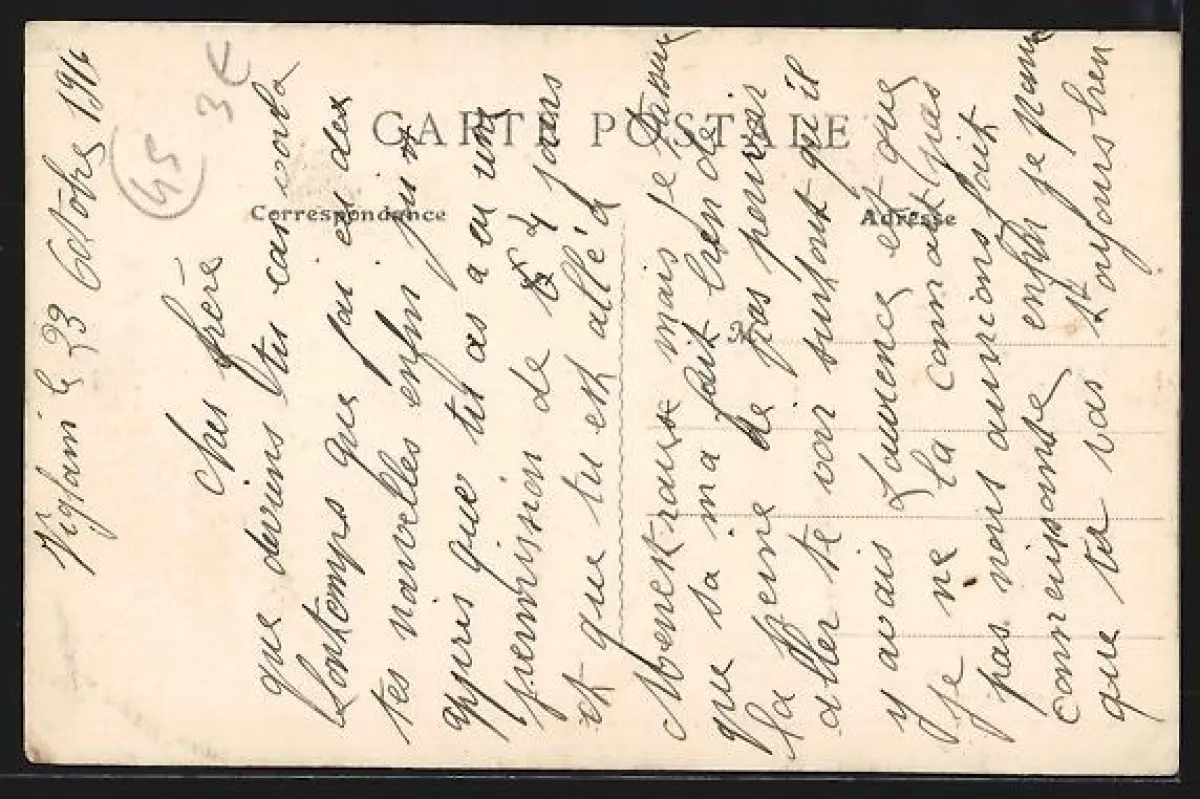 CARTE POSTALE
Correspondance
Adresse
(45
3 €
Viglain le 23 Octobre 1916
cher frère
que deviens tu car voila
lontemps que j'ai eu des
tes nouvelles enfin j'u
appris que tu as a eu une
permission de 4 jours
et que tu est allé a
mais je t'assure
que sa m'a fait bien de
la peine de pas pouvoir
aller te voir surtout qu'il
y avais Laurence et que
je ne la connait pas
pas nous aurions fait
connaissante enfin je pense
que tu vas toujours bien